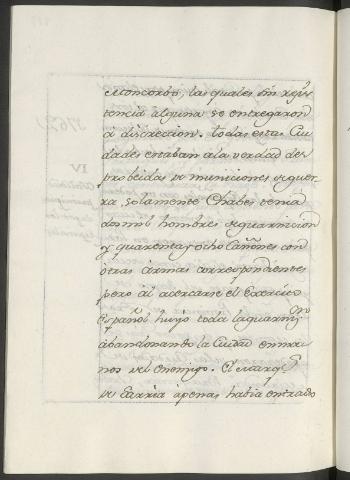 Moncorbo, las quales sin resis
tencia alguna se entregaron
a discrecion. todas estas Ciu
dades estaban à la verdad des
probeidas de municiones de guer
ra, solamente Chabes tenia
dos mil hombres de guarnicion
y quarenta y ocho Cañones con
otras armas correspondientes
pero al acercarse el Exercito
Español huyo toda la guarniⁿ
abandonando la Ciudad en ma
nos del enemigo. El Marq.ˢ
de Sarria apenas habia entrado